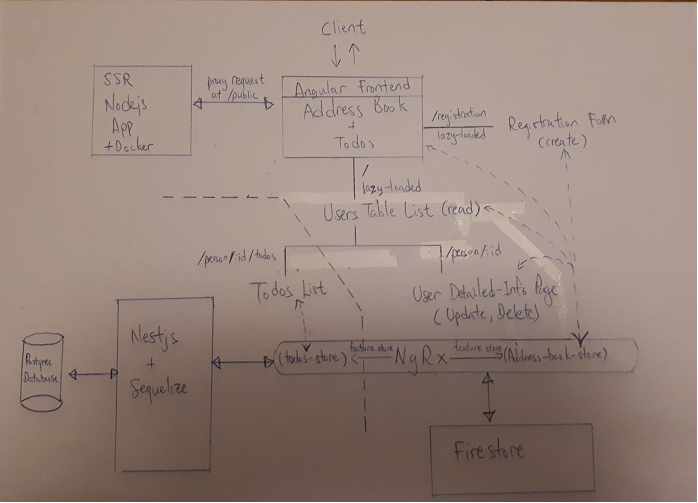 Client
SSR
Nodejs
App
+Docker
proxy request
at /public
Angular Frontend
Address Book
+
Todos
/registration
lazy-loaded
Registration Form
(create)
/
lazy-loaded
Users Table List (read)
/person/:id/todos
/person/:id
Todos List
User Detailed-Info Page
(Update, Delete)
Postgres
Database
Nestjs
+
Sequelize
(todos-store) feature store NgRx feature store (Address-book-store)
Firestore